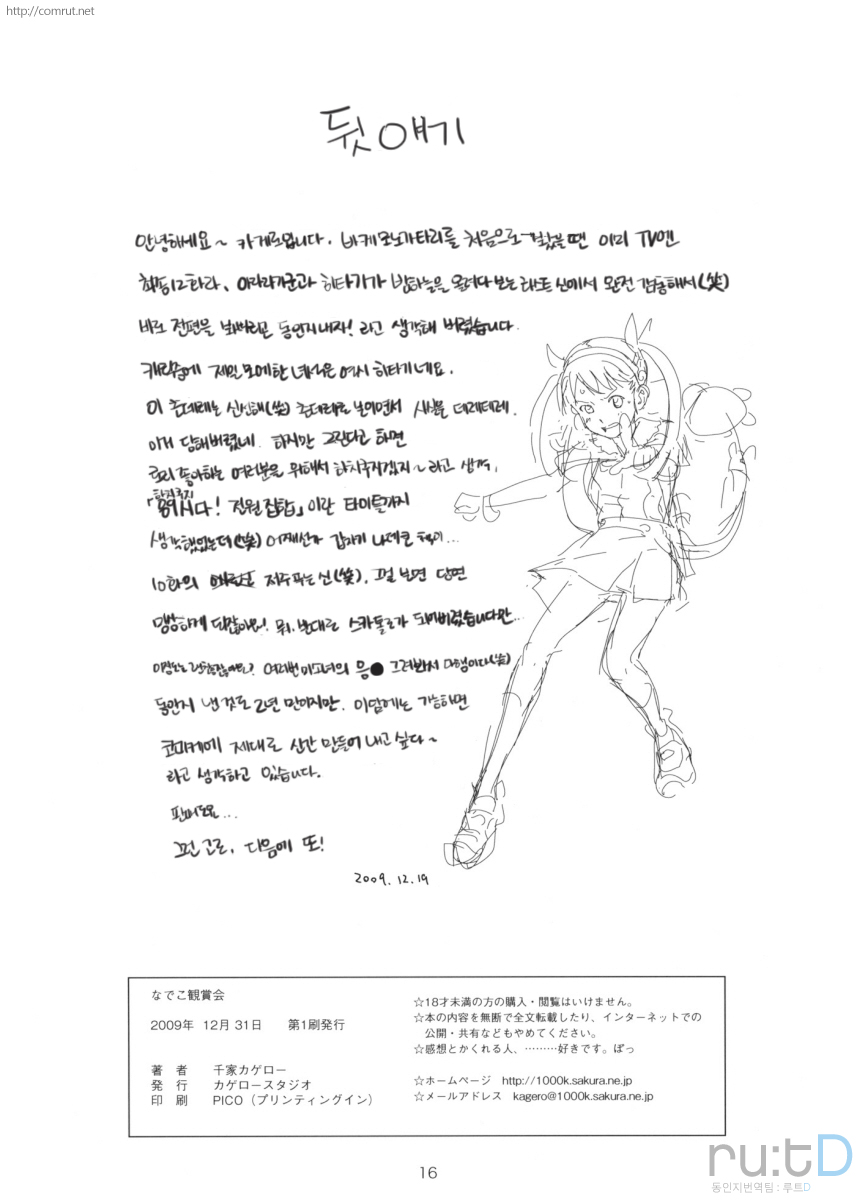 http://comrut.net
뒷얘기
안녕하세요~ 카게로입니다. 바케모노가타리를 처음으로 봤을땐 이미 TV엔
최종12화라, 아라라기군과 히타기가 밤하늘을 올려다 보는 라스트 신에서 완전 감동해서(笑)
바로 전편을 봐버리곤 동인지내자! 라고 생각해 버렸습니다.
캐릭중에 제일 모에한 녀석은 역시 히타기네요.
이 츤데레는 신선해(笑) 츤데레로 보이면서 사실은 데레데레.
이거 당해버렸네. 하지만 그런다고 하면
로리 좋아하는 여러분을 위해서 하치쿠지겠지~ 라고 생각,
전원집합」이란 타이틀까지
생각했었는데(笑) 어째선가 갑자기 나데코 책이...
10화의 저주푸는신(笑). 그걸 보면 당연
멍하게 되잖아요! 뭐. 반대로 스카톨로가 되어버렸습니다만...
여러번 미소녀의 응● 그려봐서 다행이다(笑)
동인지 낸 것도 2년 만이지만. 이담에는 가능하면
코미케에 제대로 신간 만들어 내고 싶다~
라고 생각하고 있습니다.
그런 고로, 다음에 또!
2009.12.19
なでこ観賞会
2009年 12月 31日 第1刷発行
著 者 千家カゲロー
発 行 カゲロースタジオ
印 刷 PICO（プリンティングイン）
☆18才未満の方の購入・閲覧はいけません。
☆本の内容を無断で全文転載したり、インターネットでの
公開・共有などもやめてください。
☆感想とかくれる人、………好きです。ぽっ
☆ホームページ http://1000k.sakura.ne.jp
☆メールアドレス kagero@1000k.sakura.ne.jp
16
ru:tD
동인지번역팀 : 루트D